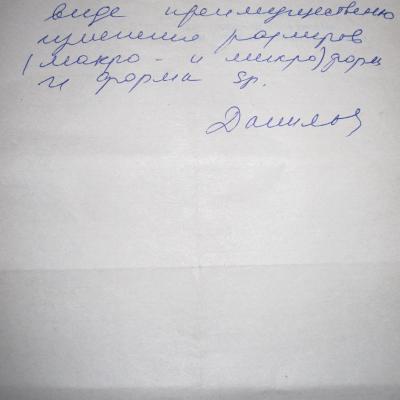 виде преимущественно
изменения размеров
(макро- и микро) форм
и форма sp.
Данилов